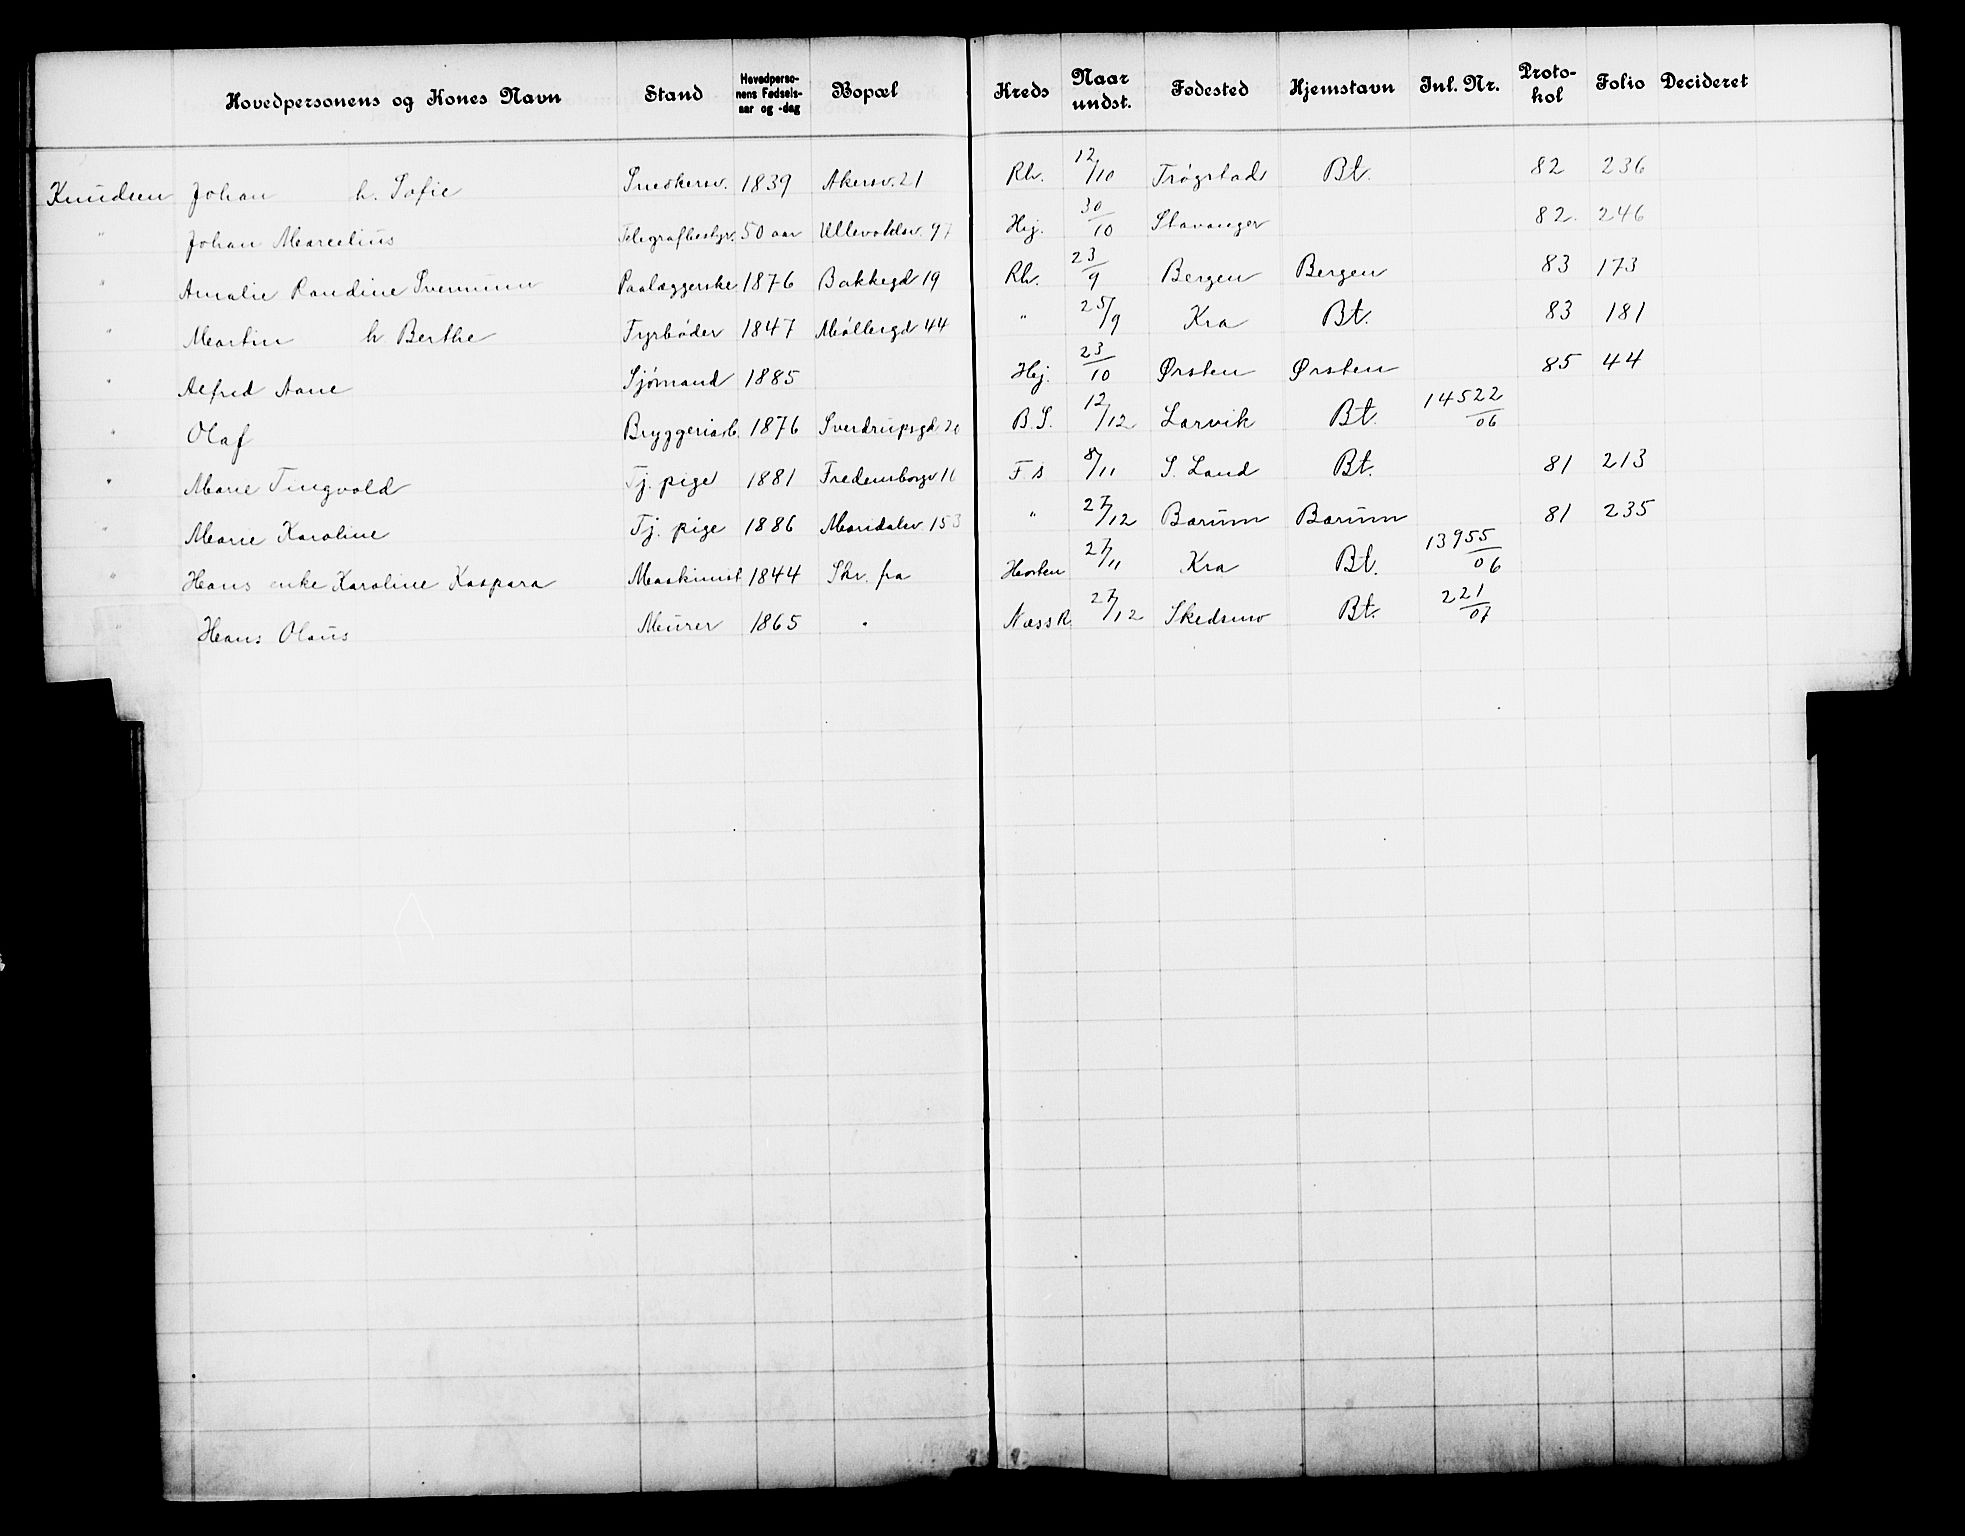 Hovedpersonens og Kones Navn Stand Hovedpersonens Fødsels-aar og -dag Bopæl Kreds Naar undst. Fødested Hjemstavn Inl. Nr. Proto-kol Folio Decideret
Knudsen Johan h. Sofie Snedkersv. 1839 Akersv. 21 Rh. 12/10 Trøgstad Bt. 82 236
" Johan Marcelius Telegrafbestyr. 50 aar Ullevoldsv. 97 Hej. 30/10 Stavanger 82. 246
" Amalie Randine Svennum Paalæggerske 1876 Bakkegd 19 Rh. 23/9 Bergen Bergen 83 173
" Martin h Berthe Fyrbøder 1847 Møllergd 44 " 25/9 Kra Bt. 83 181
" Alfred Aane Sjømand 1885 Hej. 23/10 Ørsten Ørsten 85 44
" Olaf Bryggeriarb. 1876 Sverdrupsgd B.S. 12/12 Larvik Bt. 14522/06
" Marie Tingvold Tj. pige 1881 Fredensborgv F.s 8/11 S. Land Bt. 81 213
" Marie Karoline Tj. pige 1886 Maridalsv 153 " 27/12 Bærum Bærum 81 235
" Hans enke Karoline Kaspara Maskinist 1844 Skr. fra Horten 27/11 Kra Bt. 13955/06
" Hans Olaus Murer 1865 " Næss R. 27/12 Skedsmo Bt. 221/07